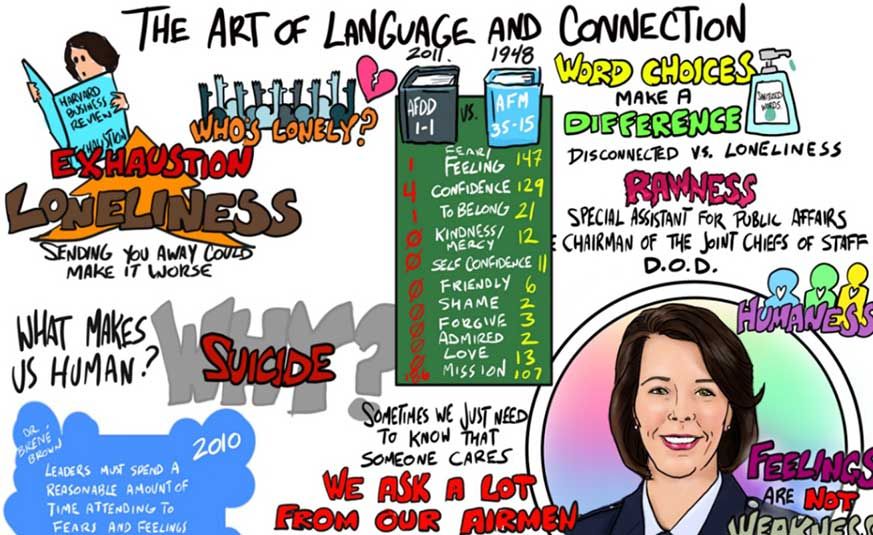 THE ART OF LANGUAGE AND CONNECTION
HARVARD
BUSINESS
REVIEW
EXHAUSTION
EXHAUSTION
LONELINESS
SENDING YOU AWAY COULD
MAKE IT WORSE
WHO'S LONELY?
2011. 1948
AFDD
1-1
VS.
AFM
35-15
1 FEAR/
FEELING 147
4 CONFIDENCE 129
1 TO BELONG 21
0 KINDNESS/
MERCY 12
0 SELF CONFIDENCE 11
0 FRIENDLY 6
0 SHAME 2
0 FORGIVE 3
0 ADMIRED 2
0 LOVE 13
MISSION 107
WORD CHOICES
MAKE A
DIFFERENCE
SANITIZED
WORDS
DISCONNECTED VS. LONELINESS
RAWNESS
SPECIAL ASSISTANT FOR PUBLIC AFFAIRS
CHAIRMAN OF THE JOINT CHIEFS OF STAFF
D.O.D.
HUMANESS
WHAT MAKES
US HUMAN?
WHY?
SUICIDE
DR.
BRENÉ
BROWN
2010
LEADERS MUST SPEND A
REASONABLE AMOUNT OF
TIME ATTENDING TO
FEARS AND FEELINGS
SOMETIMES WE JUST NEED
TO KNOW THAT
SOMEONE CARES
WE ASK A LOT
FROM OUR AIRMEN
FEELINGS
ARE NOT
WEAKNESS